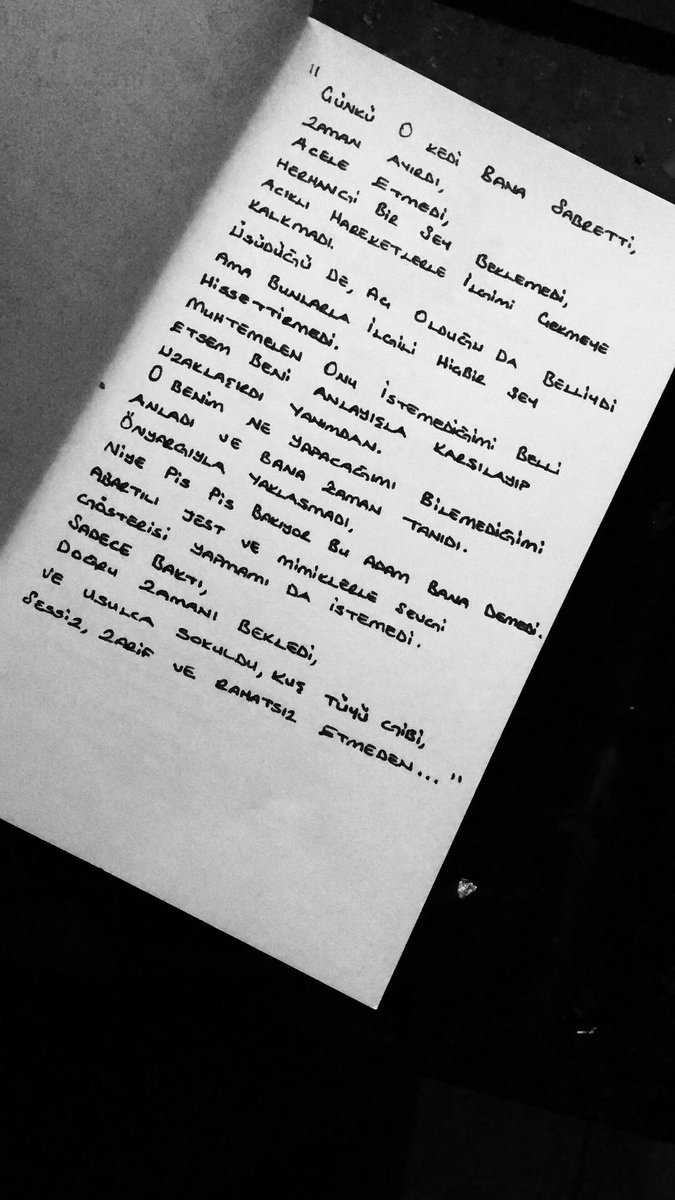 "
ÇÜNKÜ O KEDİ BANA SABRETTİ,
ZAMAN AYIRDI,
ACELE ETMEDİ,
HERHANGİ BİR ŞEY BEKLEMEDİ,
ACIKLI HAREKETLERLE İLGİMİ ÇEKMEYE
KALKMADI.
ÜŞÜDÜĞÜ DE, AÇ OLDUĞU DA BELLİYDİ
AMA BUNLARLA İLGİLİ HİÇBİR ŞEY
HİSSETTİRMEDİ.
MUHTEMELEN ONU İSTEMEDİĞİMİ BELLİ
ETSEM BENİ ANLAYIŞLA KARŞILAYIP
UZAKLAŞIRDI YANIMDAN.
O BENİM NE YAPACAĞIMI BİLEMEDİĞİMİ
ANLADI VE BANA ZAMAN TANIDI.
ÖNYARGIYLA YAKLAŞMADI,
NİYE PİS PİS BAKIYOR BU ADAM BANA DEMEDİ.
ABARTILI JEST VE MİMİKLERLE SEVGİ
GÖSTERİSİ YAPMAMI DA İSTEMEDİ.
SADECE BAKTI,
DOĞRU ZAMANI BEKLEDİ,
VE USULCA SOKULDU, KUŞ TÜYÜ GİBİ,
SESSİZ, ZARİF VE RAHATSIZ ETMEDEN... "